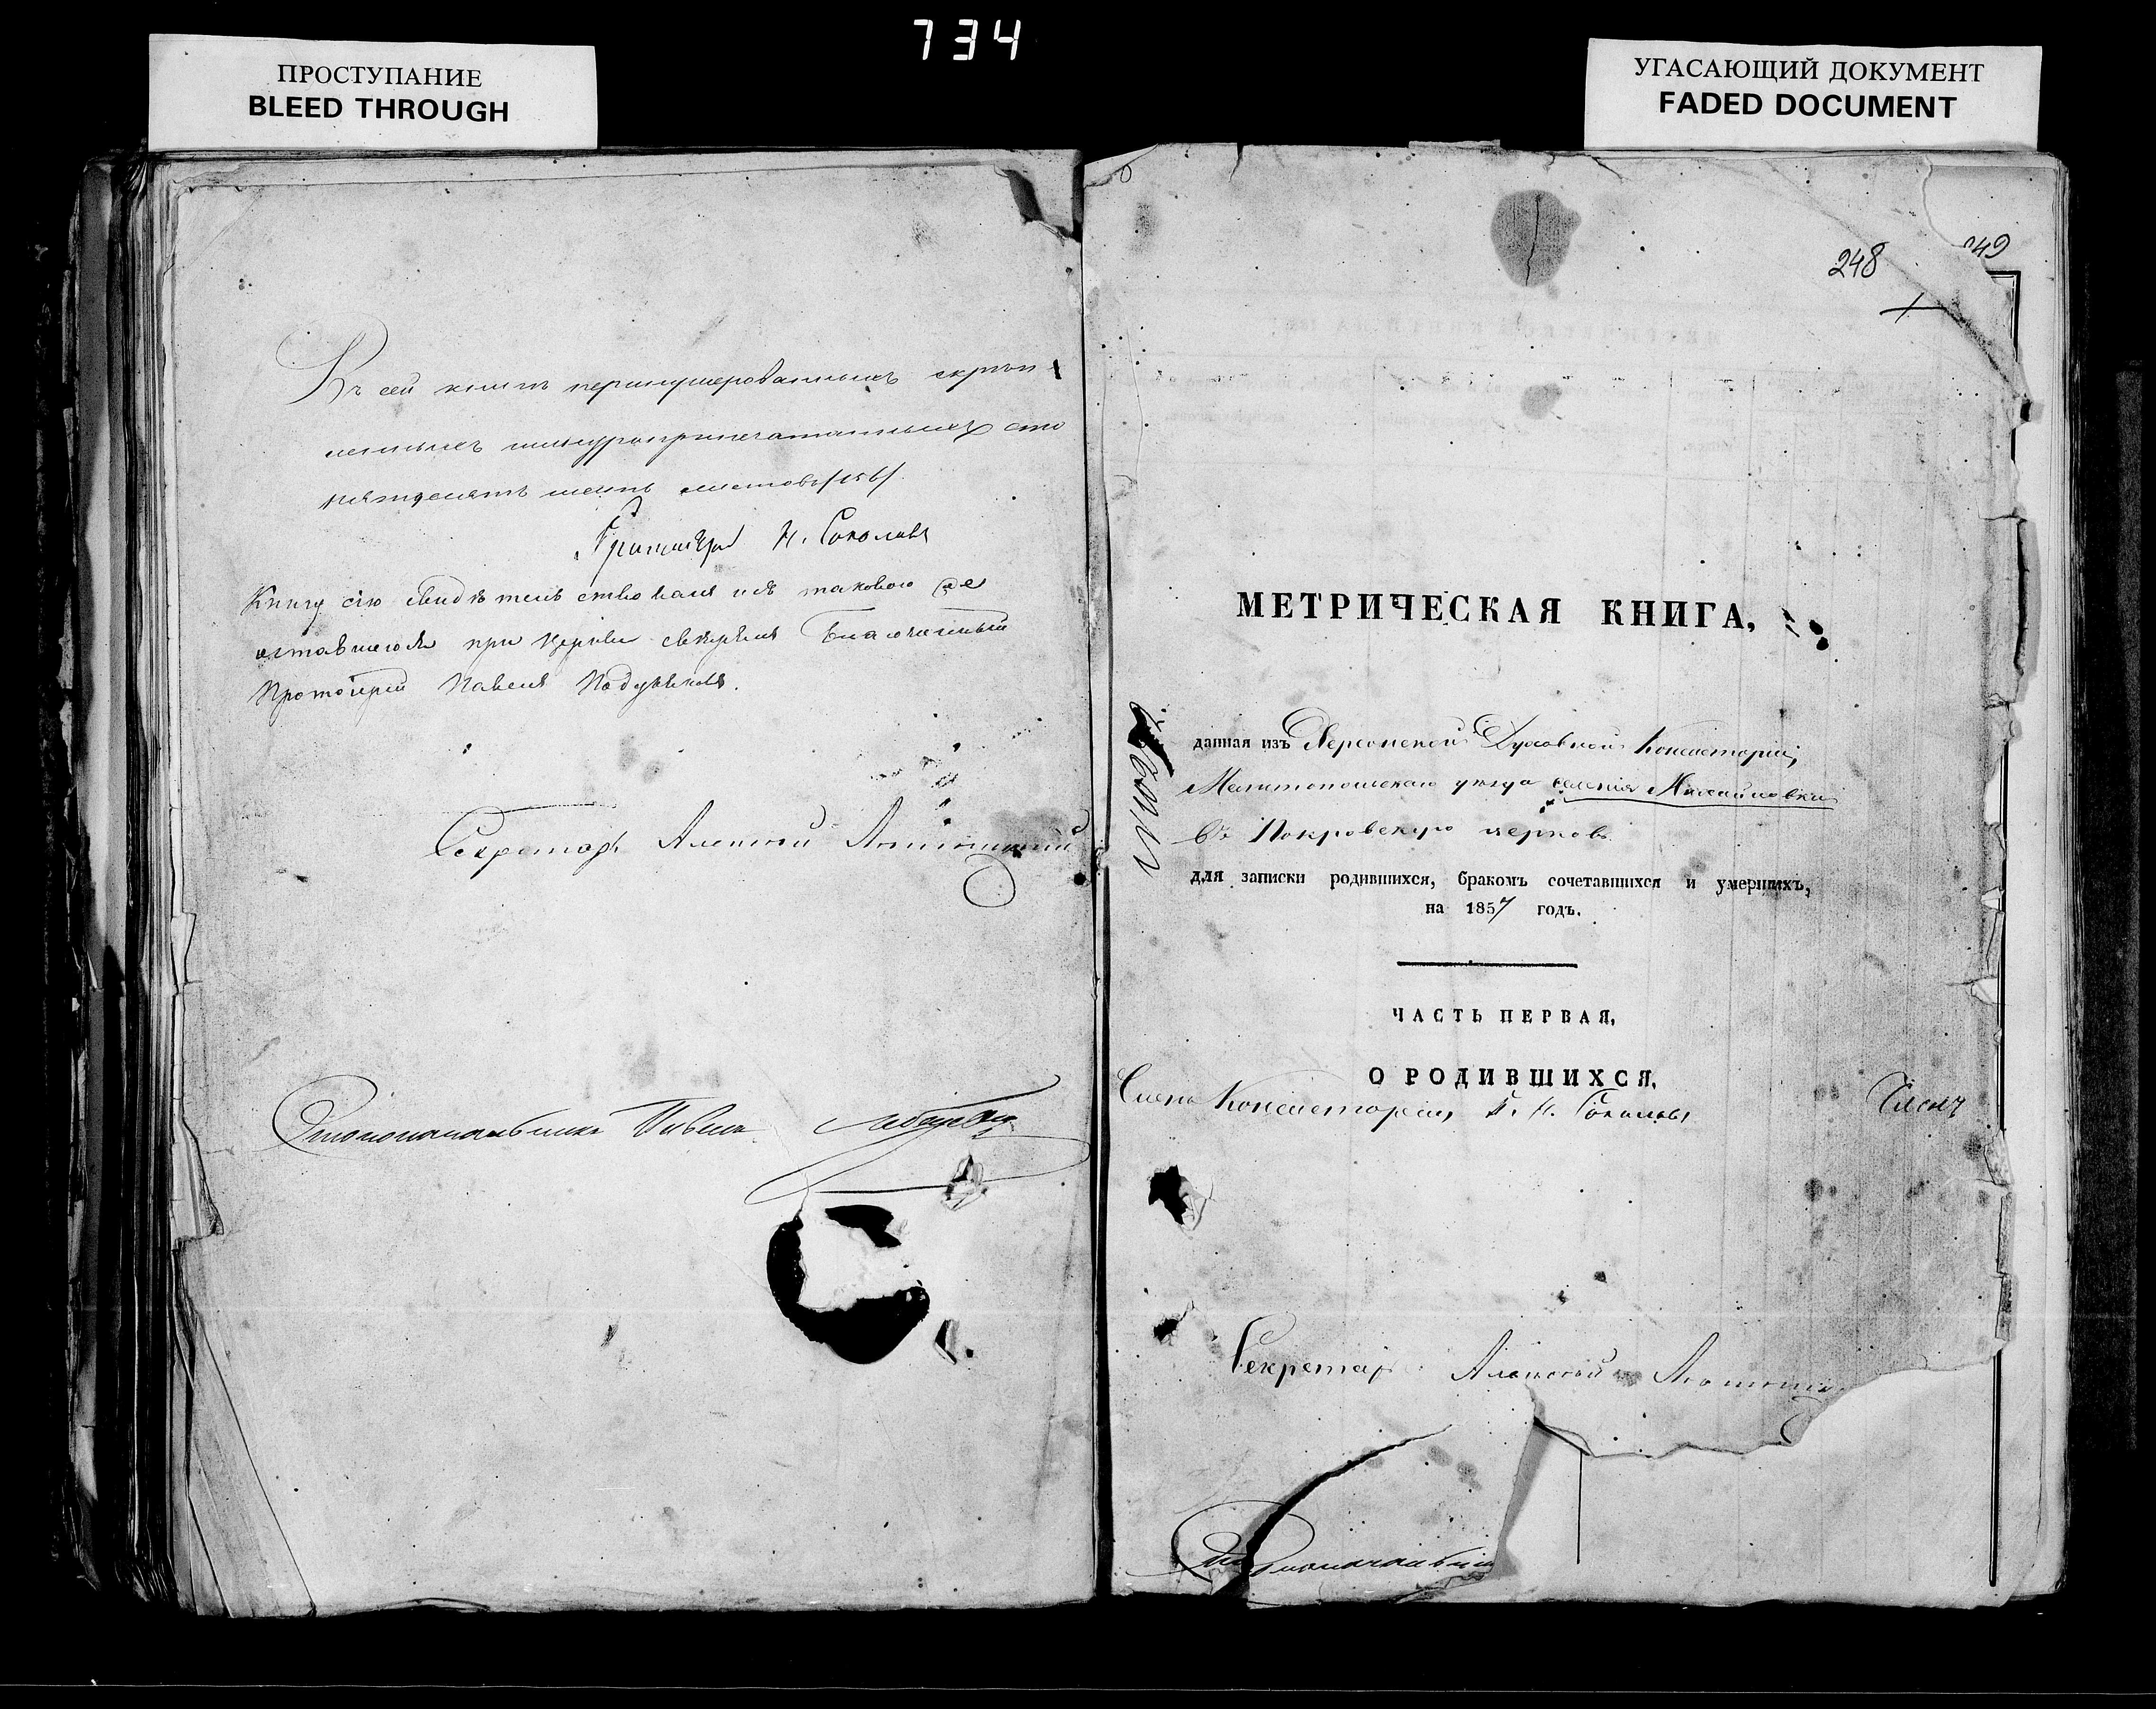 734
ПРОСТУПАНИЕ
BLEED THROUGH
УГАСАЮЩИЙ ДОКУМЕНТ
FADED DOCUMENT
Въ сей книгѣ перенумерованныхъ скрѣп-
ленныхъ шнуроприпечатанныхъ сто
пятдесятъ шесть листовъ /156/.
Протоіерей Н. Соколовъ
Книгу сію свидѣтельствовалъ и съ таковою же
оставшеюся при церкви свѣрялъ Благочинный
Протоіерей Павелъ
Секретарь Алексѣй
Столоначальникъ
248
249
МЕТРИЧЕСКАЯ КНИГА,
данная изъ Херсонской Духовной Консисторіи,
Мелитопольскаго уѣзда селенія Михайловки
въ Покровскую церковь
для записки родившихся, бракомъ сочетавшихся и умершихъ,
на 1857 годъ.
ЧАСТЬ ПЕРВАЯ,
О РОДИВШИХСЯ.
Членъ Консисторіи, П. Н. Соколовъ
Членъ
Секретарь Алексѣй
Столоначальник